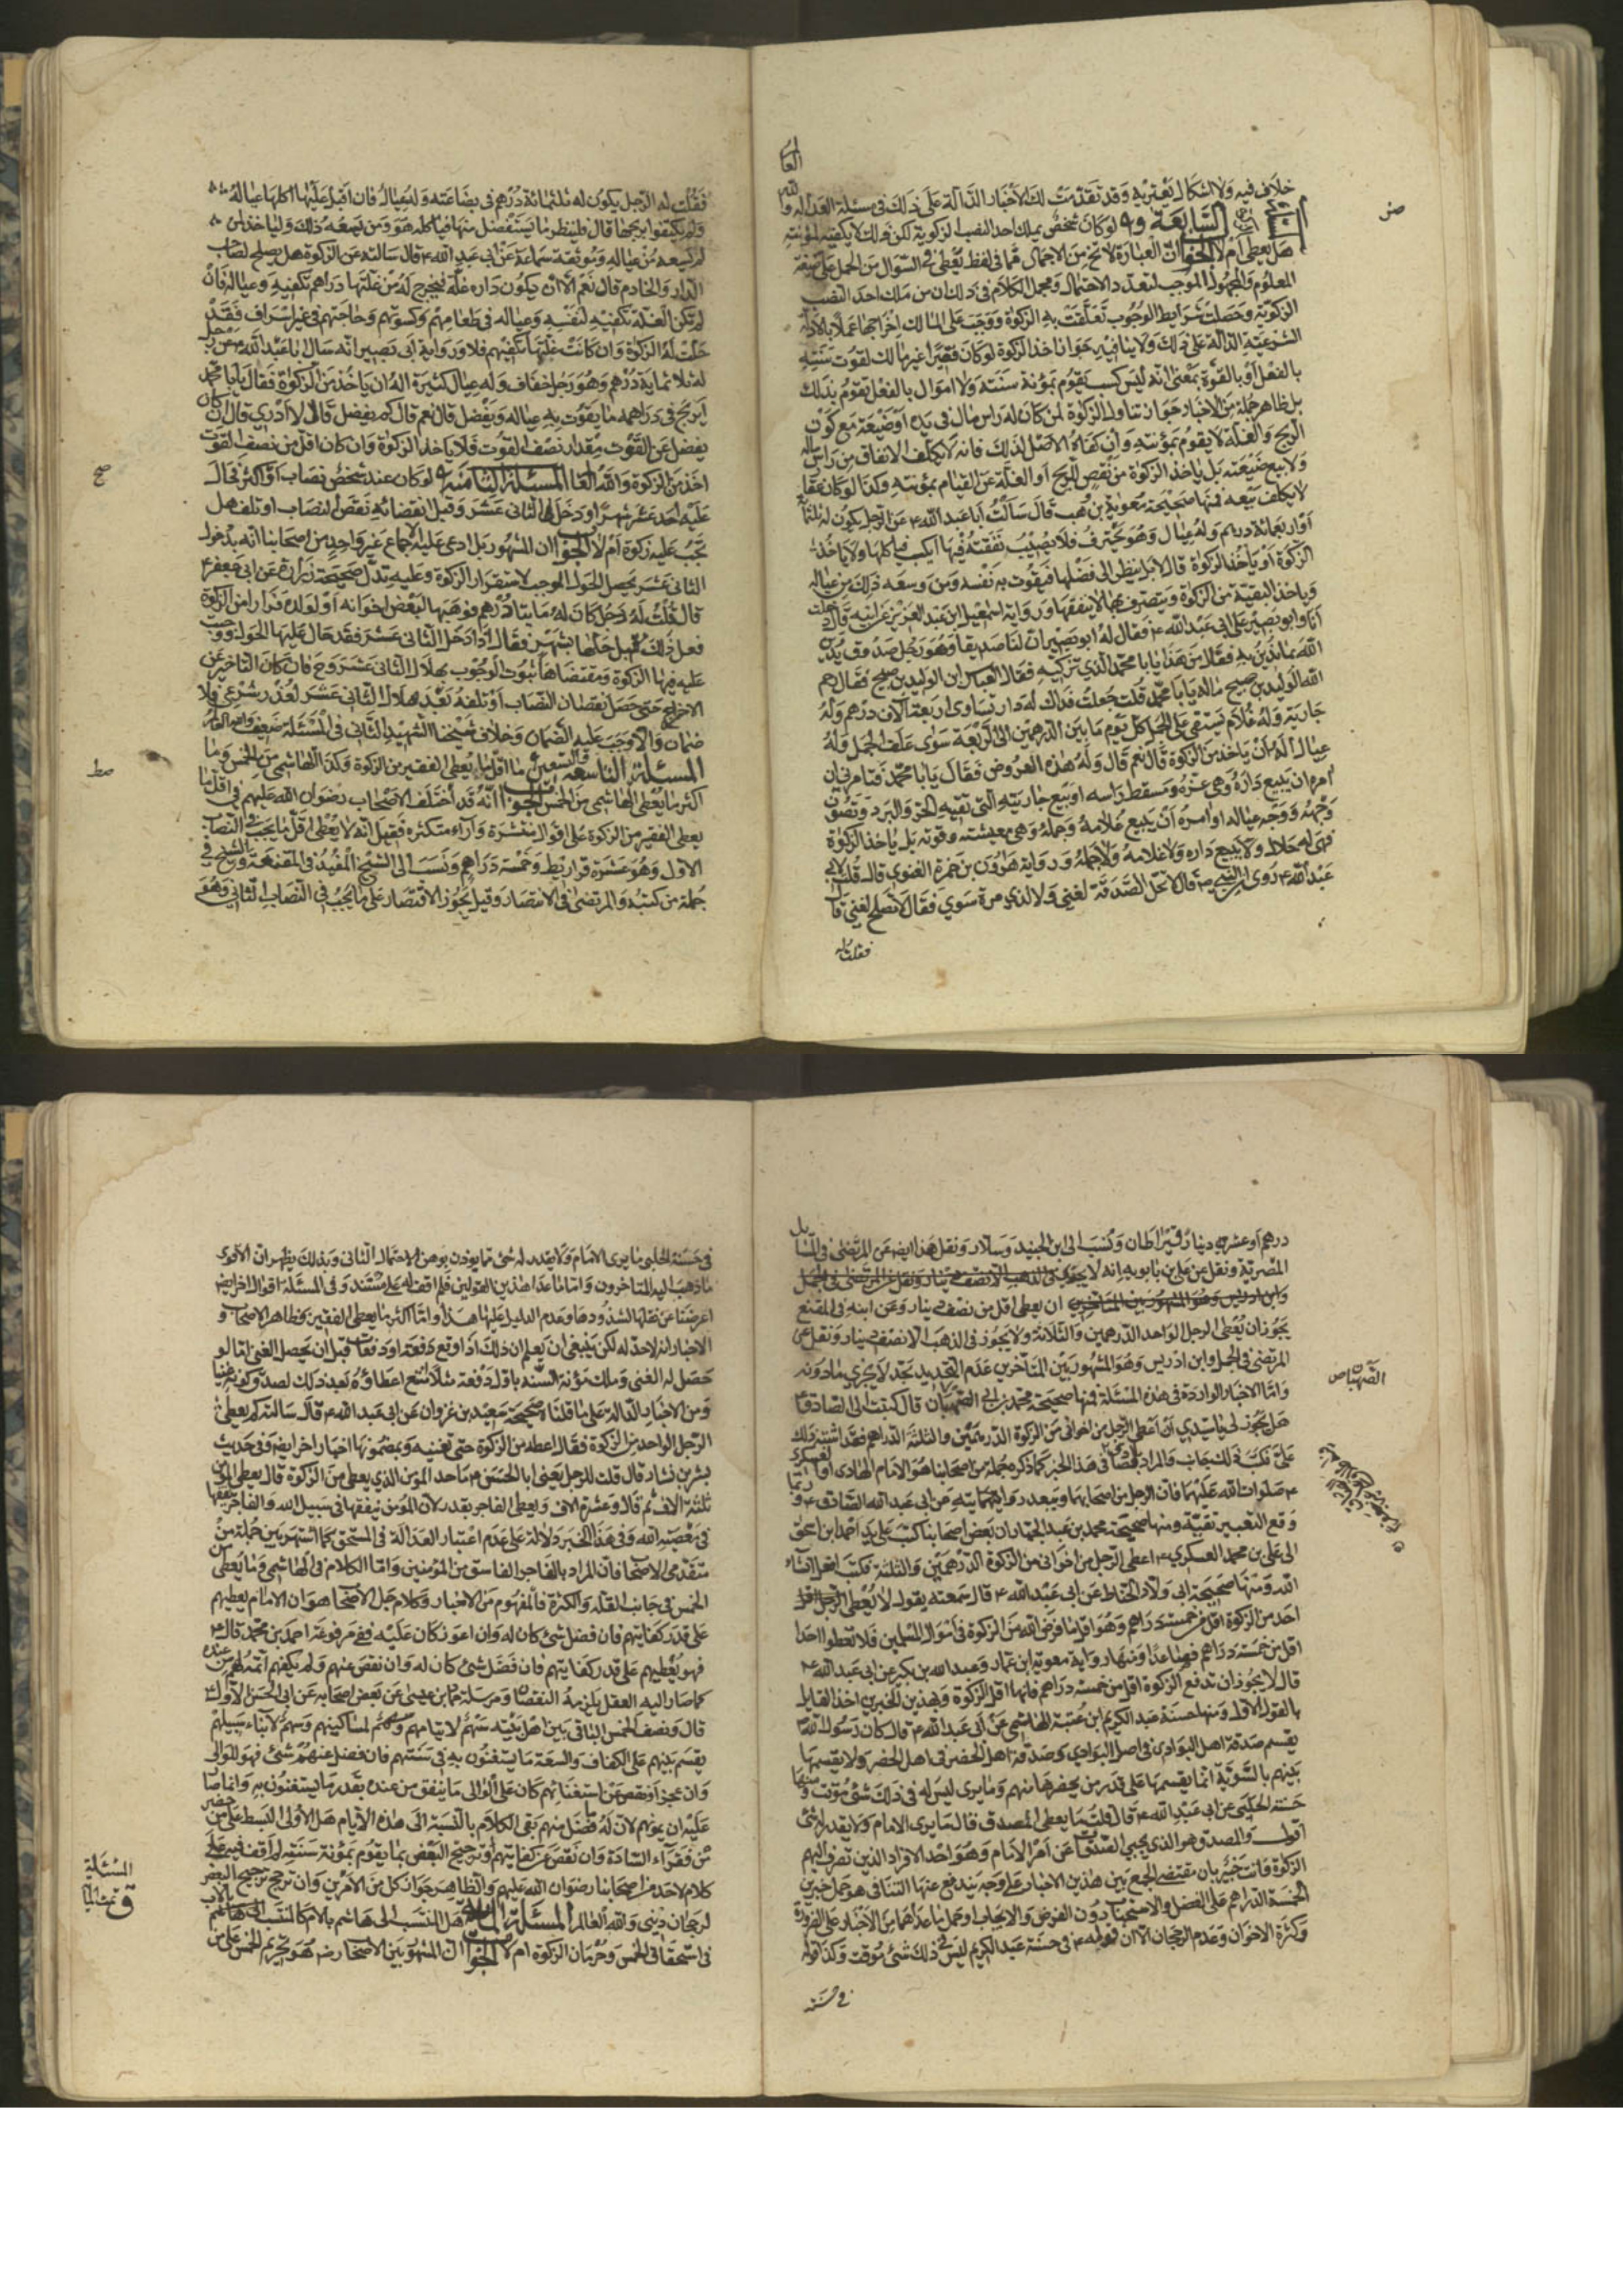 خلاف فيه ولا اشكال يعتريه وقد تقدمت لك الاخبار الدالة على ذلك في مسئلة العدالة والله
العا
السابعة و٩ لو كان شخص يملك احد النصب الزكوية لكن ذلك لا يكفيه لمؤنته
هل يعطى ام لا الجواب ان العبارة لا تخ من الاجمال فما في لفظ يعطى في السؤال من الحمل على صيغة
المعلوم والمجهول الموجب لتعدد الاحتمال ومجمل الكلام في ذلك ان من ملك احد النصب
الزكوية وحصلت شرايط الوجوب تعلقت به الزكوة ووجب على المالك اخراجها عملا بالادلة
الشرعية الدالة على ذلك ولا ينافيه جواز اخذ الزكوة لو كان فقيرا غير مالك لقوت سنته
بالفعل او بالقوة بمعنى انه ليس كسب يقوم بمؤنة سنته ولا اموال بالفعل تقوم بذلك
بل ظاهر جملة من الاخبار جواز تناول الزكوة لمن كان له راس مال في يده او ضيعة مع كون
الربح والغلة لا يقوم بمؤنته وان كفاه الاصل لذلك فانه لا يكلف الانفاق من راس ماله
ولا بيع ضيعته بل ياخذ الزكوة من نقص الربح او الغلة عن القيام بمؤنته وكذا لو كان عقا
لا يكلف بيعه فمنها صحيحة معوية بن وهب قال سالت ابا عبد الله ع عن الرجل يكون له ثلثمائة
او اربعمائة درهم وله عيال وهو يحترف فلا يصيب نفقته فيها ايكب فياكلها ولا ياخذ
الزكوة او ياخذ الزكوة قال لا بل ينظر الى فضلها فيقوت به نفسه ومن وسعه ذلك من عياله
وياخذ البقية من الزكوة ويتصرف بهذه لا ينفقها ورواية اسمعيل بن عبد العزيز عن ابيه قال دخلت
انا وابو بصير على ابي عبد الله ع فقال له ابو بصير ان لنا صديقا وهو رجل صدوق يدين
الله بما ندين به فقال من هذا يا ابا محمد الذي تزكيه فقال العباس بن الوليد بن صبيح فقال رحم
الله الوليد بن صبيح ماله يا ابا محمد قلت جعلت فداك له دار تساوى اربعة آلاف درهم وله
جارية وله غلام يستقي على الجمل كل يوم ما بين الدرهمين الى الاربعة سوى علف الجمل وله
عيال اله ان ياخذ من الزكوة قال نعم قال وله هذه العروض فقال يا ابا محمد فتامرني ان
امره ان يبيع داره وهي عزه ومسقط راسه او يبيع جاريته التي تقيه الحر والبرد وتصون
وجهه ووجه عياله او امره ان يبيع غلامه وجمله وهي معيشته وقوته بل ياخذ الزكوة
فهي له حلال ولا يبيع داره ولا غلامه ولا جمله ورواية هرون بن حمزة الغنوي قال قلت لابي
عبد الله ع روى عن النبي ص قال لا تحل الصدقة لغني ولا لذي مرة سوي فقال لا تصلح لغني قال
فقلت له
صز
فقلت له الرجل يكون له ثلثمائة درهم في بضاعته وله عيال فان اقبل عليها اكلها عياله
ولم يكتفوا بربحها قال فلينظر ما يستفضل منها فياكله هو ومن يسعه ذلك ولياخذ لمن
لم يسعه من عياله وموثقة سماعة عن ابي عبد الله ع قال سالته عن الزكوة هل يصلح لصاحب
الدار والخادم قال نعم الا ان يكون داره غلة فيخرج له من غلتها دراهم تكفيه وعياله فان
لم تكن الغلة تكفيه لنفسه وعياله في طعامهم وكسوتهم وحاجتهم في غير اسراف فقد
حلت له الزكوة وان كانت غلتها تكفيهم فلا ورواية ابي بصير انه سال ابا عبد الله ع عن رجل
له ثلاثماية درهم وهو رجل خفاف وله عيال كثيرة اله ان ياخذ من الزكوة فقال يا ابا محمد
ايربح في دراهمه ما يقوت به عياله ويفضل قال نعم قال كم يفضل قال لا ادري قال ان كان
يفضل عن القوت مقدار نصف القوت فلا ياخذ الزكوة وان كان اقل من نصف القوت
اخذ من الزكوة والله العالم المسئلة الثامنة و٩ لو كان عند شخص نصاب او اكثر في حال
عليه احد عشر شهرا ودخل في الثاني عشر وقبل انقضائه نقص النصاب او تلف هل
تجب عليه زكوة ام لا الجواب ان المشهور بل ادعى عليه الاجماع غير واحد من اصحابنا انه بدخول
الثاني عشر يحصل الحول الموجب لاستقرار الزكوة وعليه تدل صحيحة زرارة عن ابي جعفر ع
قال قلت له رجل كان له مايتا درهم فوهبها لبعض اخوانه او لولده فرارا من الزكوة
فعل ذلك قبل حلها بشهر فقال اذا دخل الثاني عشر فقد حال عليها الحول ووجبت
عليه فيها الزكوة ومقتضاها ثبوت الوجوب بهلال الثاني عشر وح فان كان التاخير عن
الاخراج حتى حصل نقصان النصاب او تلفه بعد هلال الثاني عشر لعذر شرعي فلا
ضمان والا وجب عليه الضمان وخلاف شيخنا الشهيد الثاني في المسئلة ضعيف والله العالم
المسئلة التاسعة والتسعين ما اقل ما يعطى الفقير من الزكوة وكذا الهاشمي من الخمس وما
اكثر ما يعطى الهاشمي من الخمس الجواب انه قد اختلف الاصحاب رضوان الله عليهم في اقل ما
يعطى الفقير من الزكوة على اقوال منتشرة وآراء متكثرة فقيل انه لا يعطى اقل ما يجب في النصاب
الاول وهو عشرة قراريط وخمسة دراهم ونسب الى الشيخ المفيد في المقنعة والشيخ في
جملة من كتبه والمرتضى في الانتصار وقيل يجوز الاقتصار على ما يجب في النصاب الثاني وهو
صح
صط
درهم او عشر دينار قيراطان ونسب الى ابن الجنيد وسلار ونقل هذا ايضا عن المرتضى في المسائل
المصرية ونقل عن علي بن بابويه انه لا يجوز
ان يعطى اقل من نصف دينار وعن ابنه في المقنع
يجوز ان يعطى الرجل الواحد الدرهمين والثلاثة ولا يجوز في الذهب الا نصف دينار ونقل عن
المرتضى في الجمل وابن ادريس وهو المشهور بين المتاخرين عدم التحديد بحد لا يجزي ما دونه
واما الاخبار الواردة في هذه المسئلة فمنها صحيحة محمد بن ابي الصهبان قال كتبت الى الصادق ع
هل يجوز لي يا سيدي ان اعطي الرجل من اخواني من الزكوة الدرهمين والثلثة الدراهم فقد اشتبه ذلك
علي فكتب ذلك جايز والمراد بالصادق في هذا الخبر كما ذكره جملة من اصحابنا هو الامام الهادي او العسكري
صلوات الله عليهما فان الرجل من اصحابهما ويبعد روايته عن ابي عبد الله الصادق ع وربما
وقع التعبير تقية ومنها صحيحة محمد بن عبد الجبار ان بعض اصحابنا كتب على يد احمد بن اسحق
الى علي بن محمد العسكري ع اعطي الرجل من اخواني من الزكوة الدرهمين والثلثة فكتب افعل انشاء
الله ومنها صحيحة ابي ولاد الحناط عن ابي عبد الله ع قال سمعته يقول لا يعطى
احد من الزكوة اقل من خمسة دراهم وهو اقل ما فرض الله من الزكوة في اموال المسلمين فلا تعطوا احدا
اقل من خمسة دراهم فصاعدا ومنها رواية معوية ابن عمار وعبد الله بن بكير عن ابي عبد الله ع
قال لا يجوز ان تدفع الزكوة اقل من خمسة دراهم فانها اقل الزكوة وبهذين الخبرين اخذ القايل
بالقول الاول ومنها حسنة عبد الكريم ابن عتبة الهاشمي عن ابي عبد الله ع قال كان رسول الله ص
يقسم صدقة اهل البوادي في اهل البوادي وصدقة اهل الحضر في اهل الحضر ولا يقسمها
بينهم بالسوية انما يقسمها على قدر من يحضرها منهم وما يرى ليس له في ذلك شئ موقت ومنها
حسنة الحلبي عن ابي عبد الله ع قال قلت ما يعطى المصدق قال ما يرى الامام ولا يقدر له شئ
اقول والمصدق هو الذي يجبي الصدقات عن امر الامام وهو احد الافراد الذين تصرف اليهم
الزكوة وانت خبير بان مقتضى الجمع بين هذين الاخبار على وجه يندفع عنها التنافي هو حمل خبرين
الخمسة الدراهم على الفضل والاستحباب دون الفرض والايجاب وحمل ما عداهما من الاخبار على الضرورة
وكثرة الاخوان وعدم الرجحان الا ان قوله ع في حسنة عبد الكريم ليس في ذلك شئ موقت وكذا قوله
في حسنة
الصهبان ص
في حسنة الحلبي ما يرى الامام ولا يقدر له شئ مما يوذن بوهن الاحتمال الثاني وبذلك يظهر ان الاقوى
ما ذهب اليه المتاخرون واما ما عدا هذين القولين فلم اقف له على مستند وفي المسئلة اقوال اخر ايضا
اعرضنا عن نقلها لشذوذها وعدم الدليل عليها هذا واما اكثر ما يعطى الفقير فظاهر الاصحاب و
الاخبار انه لا حد له لكن ينبغي ان يعلم ان ذلك اذا وقع دفعة او دفعات قبل ان يحصل الغنى اما لو
حصل له الغنى وملك مؤنة السنة باول دفعة مثلا امتنع اعطاؤه بعد ذلك لصدق كونه غنيا
ومن الاخبار الدالة على ما قلناه صحيحة سعيد بن غزوان عن ابي عبد الله ع قال سالته كم يعطى
الرجل الواحد من الزكوة فقال اعطه من الزكوة حتى تغنيه وبمضمونها اخبار اخر ايضا وفي حديث
بشر بن بشار قال قلت للرجل يعني ابا الحسن ع ما حد المؤمن الذي يعطى من الزكوة قال يعطى المؤمن
ثلثة آلاف ثم قال وعشرة الاف ويعطى الفاجر بقدر لان المؤمن ينفقها في سبيل الله والفاجر ينفقها
في معصية الله وفي هذا الخبر دلالة على عدم اعتبار العدالة في المستحق كما اشتهر بين جملة من
متقدمي الاصحاب فان المراد بالفاجر الفاسق من المؤمنين واما الكلام في الهاشمي وما يعطى من
الخمس في جانب القلة والكثرة فالمفهوم من الاخبار وكلام جل الاصحاب هو ان الامام يعطيهم
على قدر كفايتهم فان فضل شئ كان له وان اعوز كان عليه ففي مرفوعة احمد بن محمد قال ع
فهو يعطيهم على قدر كفايتهم فان فضل شئ كان له وان نقص عنهم ولم يكفهم اتمه لهم من عنده
كما صار اليه الفضل يلزمه النقصان ومرسلة حماد بن عيسى عن بعض اصحابه عن ابي الحسن الاول ع
قال ونصف الخمس الباقي بين اهل بيته سهم لايتامهم وسهم لمساكينهم وسهم لابناء سبيلهم
يقسم بينهم على الكفاف والسعة ما يستغنون به في سنتهم فان فضل عنهم شئ فهو للوالي
وان عجز او نقص عن استغنائهم كان على الوالي ما ينفق من عنده بقدر ما يستغنون به وانما صار
عليه ان يمونهم لان له ما فضل منهم بقي الكلام بالنسبة الى هذه الايام هل الاولى البسط على من حضر
من فقراء السادة وان نقص عن كفايتهم او ترجيح البعض بما يقوم بمؤنة سنته لم اقف فيه على
كلام لاحد من اصحابنا رضوان الله عليهم والظاهر جواز كل من الامرين وان ترجح ترجيح البعض
لرجحان ديني والله العالم المسئلة الماية هل المنتسب الى هاشم بالام كالمنتسب اليه بالاب
في استحقاق الخمس وحرمان الزكوة ام لا الجواب ان المشهور بين الاصحاب رض هو تحريم الخمس على من
المسئلة
ق